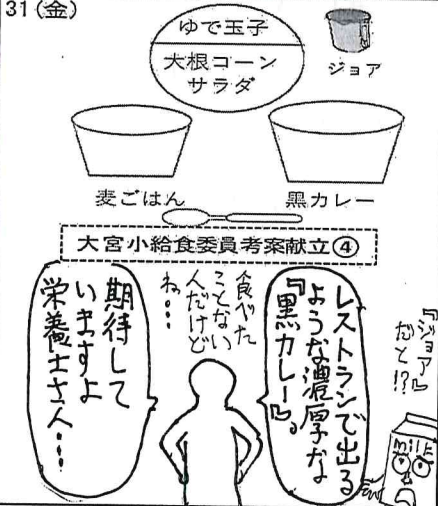 31(金)
ゆで玉子
大根コーン
サラダ
ジョア
麦ごはん
黒カレー
大宮小給食委員考案献立④
レストランで出る
ような濃厚な
『黒カレー』。
食べた
ことない
人だけど
ね…
期待して
いますよ
栄養士さん…
『ジョア』
だと!?
milk